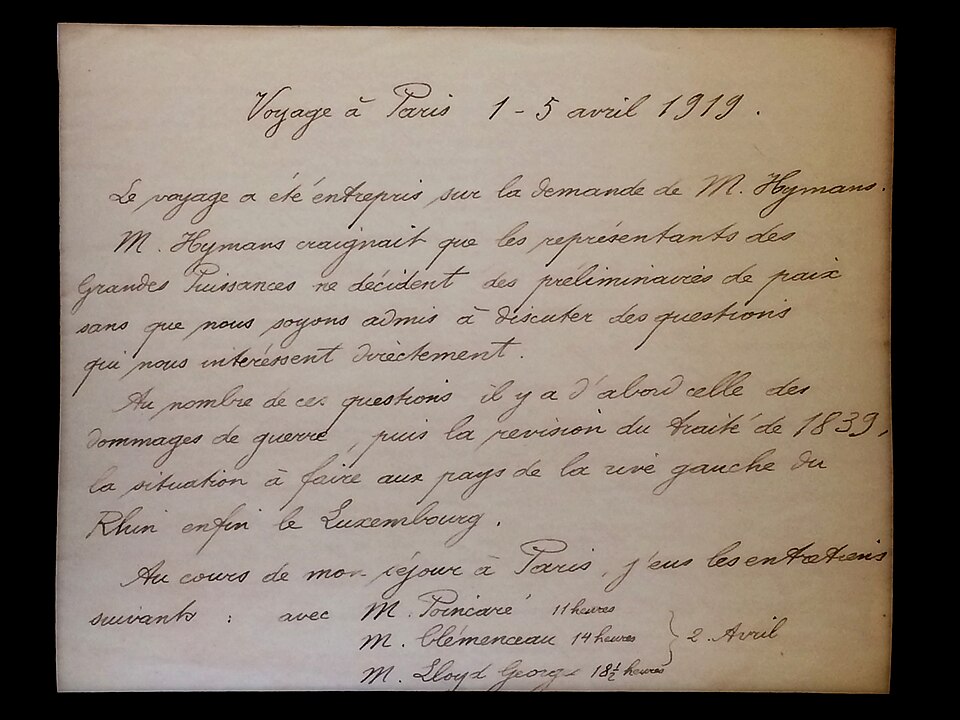 Voyage à Paris 1 - 5 avril 1919.
Le voyage a été entrepris sur la demande de M. Hymans.
M. Hymans craignait que les représentants des
Grandes Puissances ne décident des préliminaires de paix
sans que nous soyons admis à discuter des questions
qui nous intéressent directement.
Au nombre de ces questions il y a d'abord celle des
dommages de guerre, puis la revision du traité de 1839,
la situation à faire aux pays de la rive gauche du
Rhin enfin le Luxembourg.
Au cours de mon séjour à Paris, j'eus les entretiens
suivants : avec M. Poincaré 11 heures
M. Clémenceau 14 heures } 2 Avril
M. Lloyd George 18½ heures